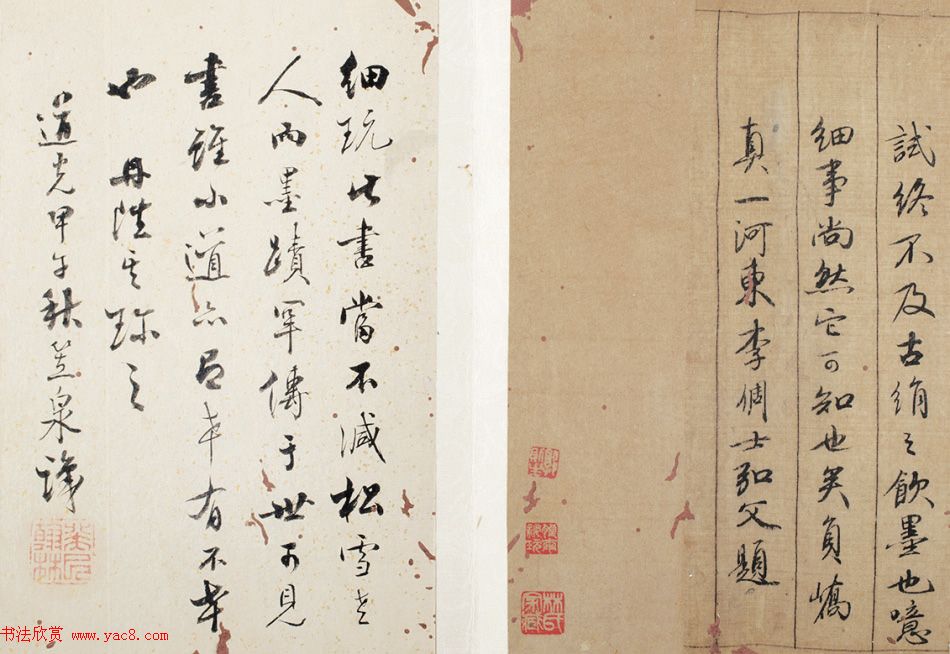 試終不及古絹之飲墨也噫
細事尚然它可知也矣員嶠
真一河東李倜士弘父題
細玩此書當不減松雪老
人而墨蹟罕傳于世可見
書雖小道亦有幸有不幸
也 丹陛其珍之
道光甲午秋泉識
书法欣赏 www.yac8.com